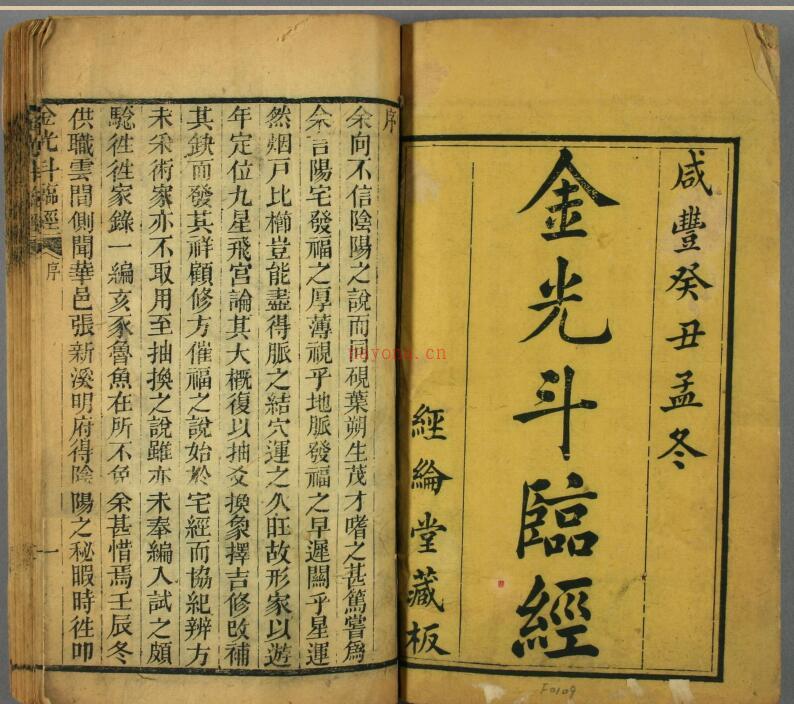 咸豐癸丑孟冬
金光斗臨經
經綸堂藏板
序
余向不信陰陽之說而同硯葉朔生茂才嗜之甚篤嘗爲
余言陽宅發福之厚薄視乎地脈發福之早遲關乎星運
然烟戸比櫛豈能盡得脈之結穴運之久旺故形家以遊
年定位九星飛宮論其大概復以抽爻換象擇吉修改補
其缺而發其祥顧修方催福之說始於宅經而協紀辨方
未采術家亦不取用至抽換之說雖亦未奉編入試之頗
驗徃徃家錄一編亥豕魯魚在所不免余甚惜焉壬辰冬
供職雲間側聞華邑張新溪明府得陰陽之秘暇時徃叩
金光斗臨經
序
一
nayona.cn
F0109